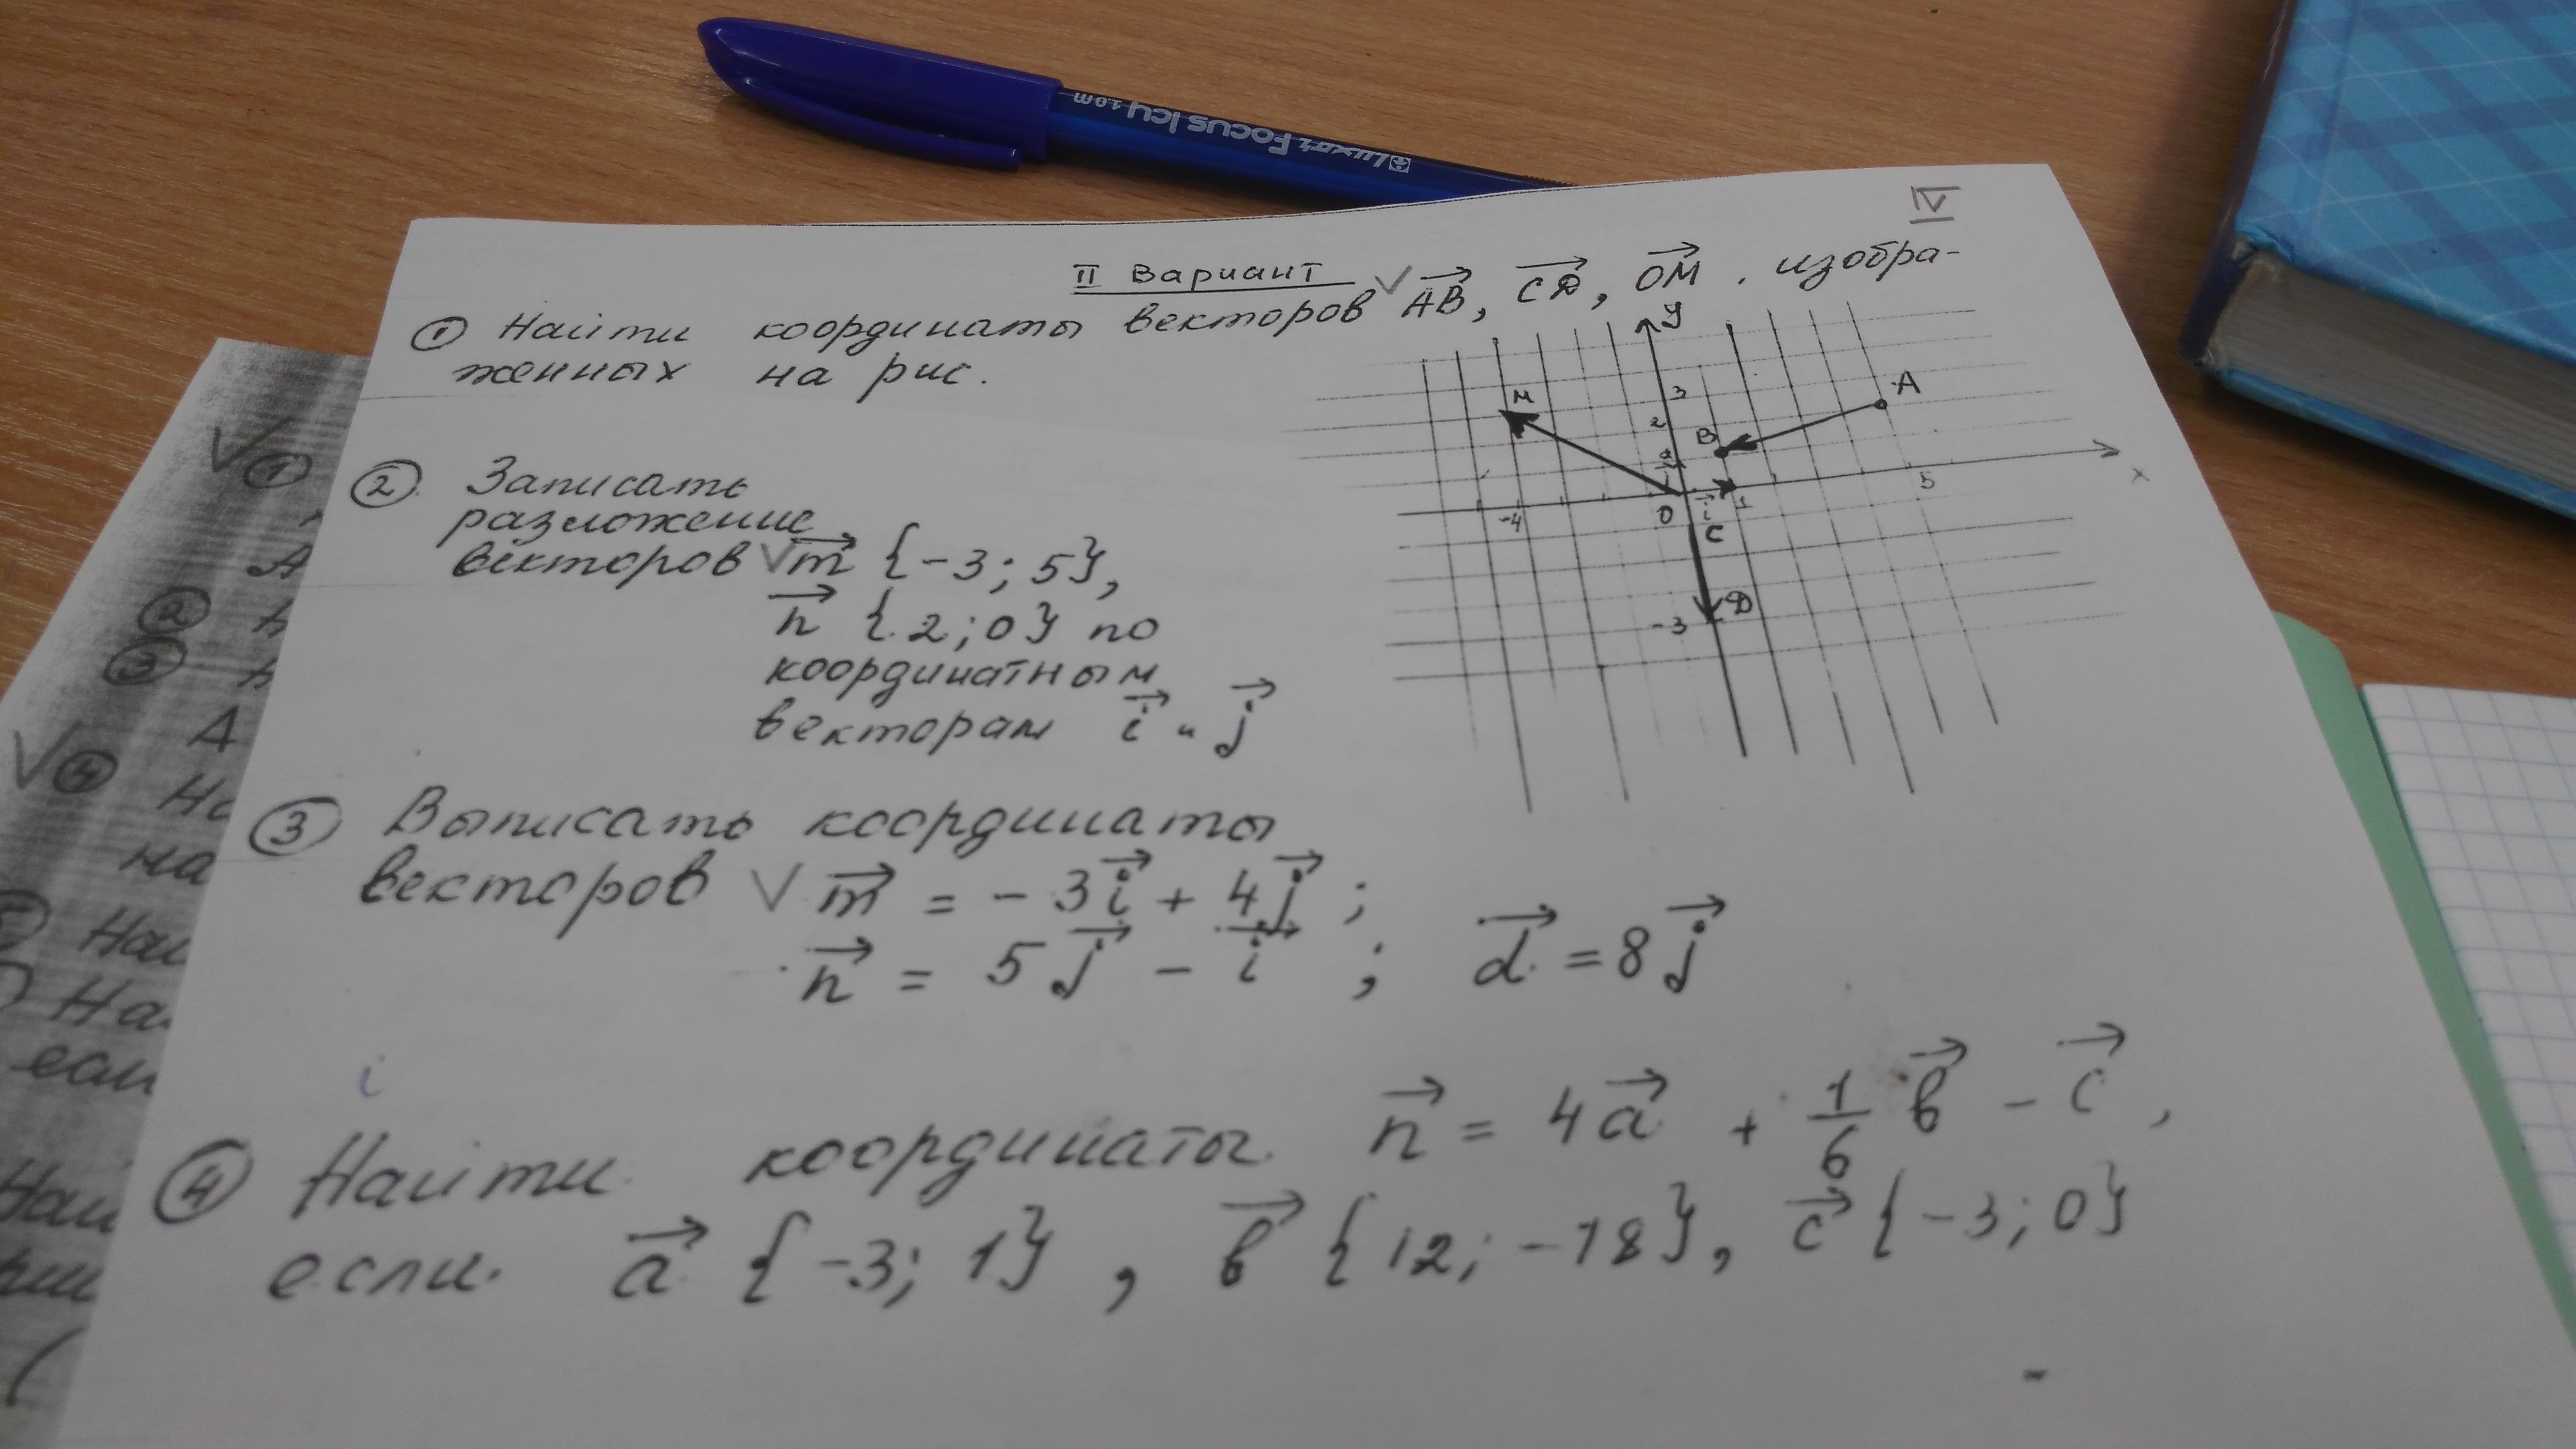 Luxor Focus Icy 1.0 m
IV
II Вариант
① Найти координаты векторов √ AB, CD, OM. изобра-
женных на рис.
② Записать
разложение
векторов √ m {-3; 5},
n {2; 0} по
координатным
векторам i и j
y
M
3
A
2
B
x
-4
0
i
1
5
C
-3
D
③ Выписать координаты
векторов √ m = - 3i + 4j ;
n = 5j - i ; d = 8j
i
④ Найти координаты n = 4a + 1/6 в - c,
если a {-3; 1}, в {12; -18}, c {-3; 0}
√ ①
②
③
А
√ ④
на